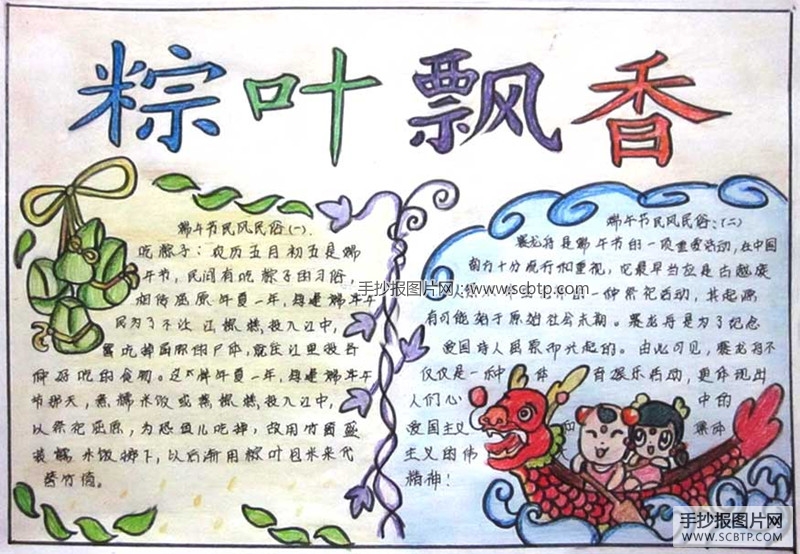 粽叶飘香
端午节民风民俗(一)
吃粽子：农历五月初五是端
午节，民间有吃粽子的习俗，
相传屈原
民为了不让江
投入江中，
就往江里投各
种好吃的食物。
节那天，煮糯米饭或蒸粽糕投入江中，
以祭祀屈原，为恐鱼儿吃掉，故用竹筒盛
装糯米饭掷下，以后渐用粽叶包米来代
替竹筒。
端午节民风民俗：(二)
赛龙舟是端午节的一项重要活动，在中国
南方十分流行
它最早当应是古越族
一种祭祀活动，其起源
有可能始于原始社会末期。赛龙舟是为了纪念
爱国诗人屈原而兴起的。由此可见，赛龙舟不
仅仅是一种 体 育娱乐活动，更体现出
人们心 中的
爱国主义 和 集体
主义的伟 大
精神！
手抄报图片网：www.scbtp.com
手抄报图片网
WWW.SCBTP.COM